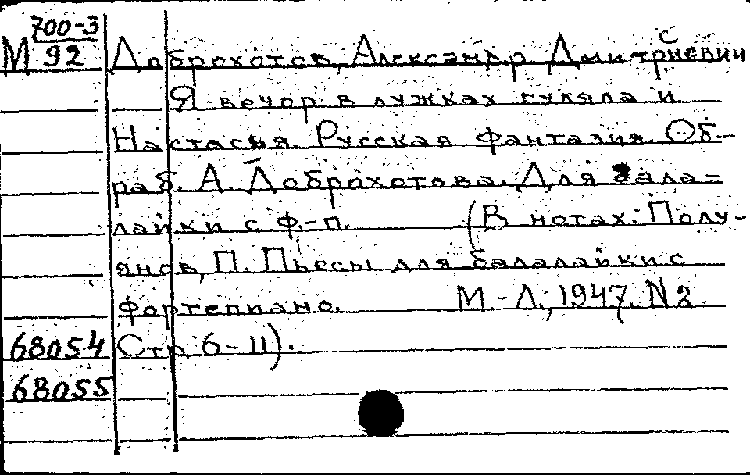 700-3
М 92 Доброхотов, Александр Дмитриевич
с
Я вечор в лужках гуляла и
Настасья. Русская фантазия. Об-
раб. А. Доброхотова. Для бала=
лайки с ф.-п. (В нотах: Полу-
янов, П. Пьесы для балалайки с
фортепиано. М.-Л., 1947. N 2.
68054 Стр. 6-11).
68055